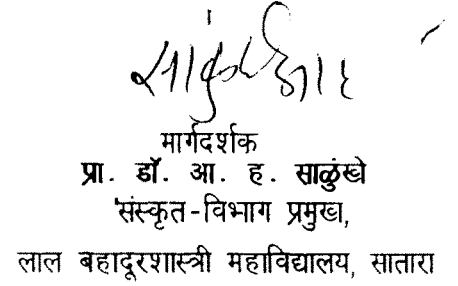 मार्गदर्शक
प्रा. डॉ. आ. ह. साळुंखे
संस्कृत-विभाग प्रमुख,
लाल बहादूरशास्त्री महाविद्यालय, सातारा